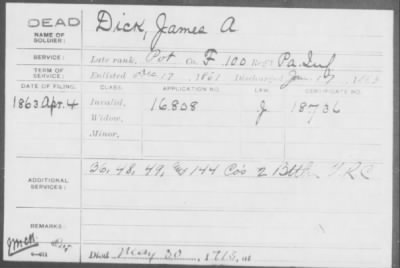 DEAD
NAME OF SOLDIER:
Dick, James A
SERVICE:
Late rank, Pvt Co. F 100 Reg't Pa. Inf
TERM OF SERVICE:
Enlisted Dec 17, 1861 Discharged Jan. 19, 1863
DATE OF FILING. CLASS. APPLICATION NO. LAW. CERTIFICATE NO.
1863 Apr. 4 Invalid, 16.808 J 18736
Widow,
Minor,
ADDITIONAL SERVICES:
36, 48, 49, & 144 Co's 2 Batt. V.R.C
REMARKS:
Died May 30, 1918, at